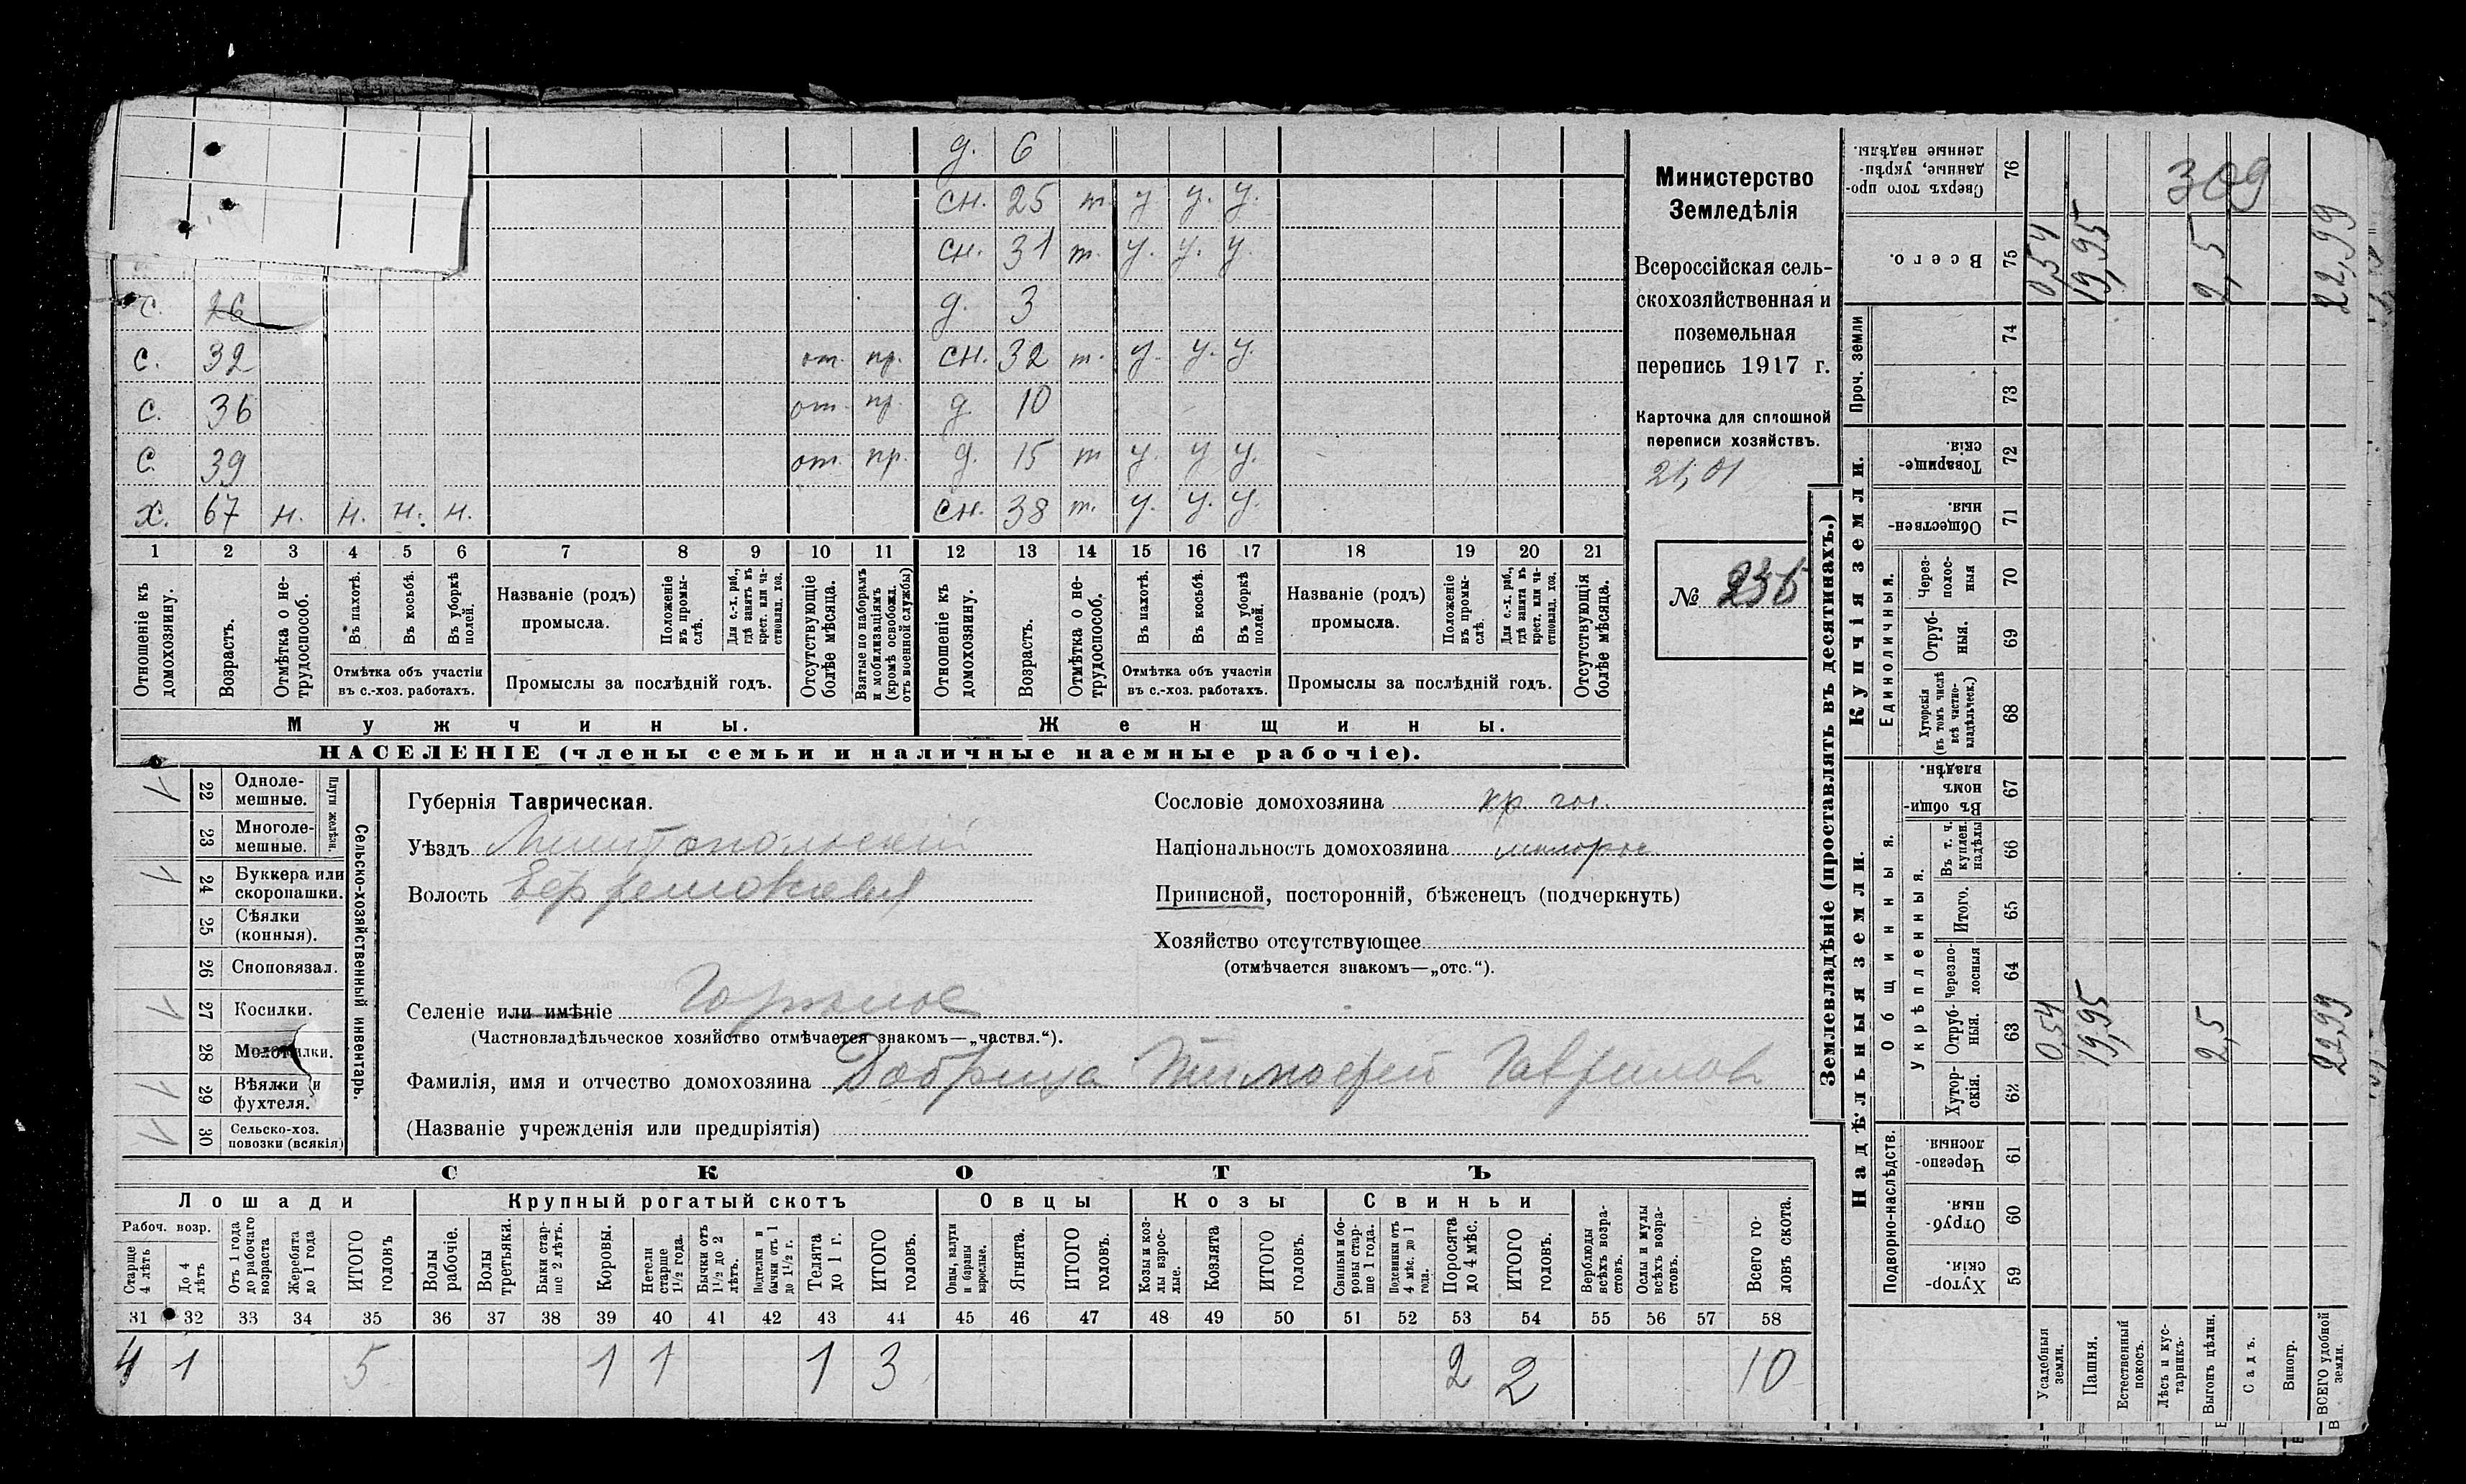 д. 6
сн. 25 т. у у. у.
сн. 31 т. у. у. у.
с. 26 д. 3
с. 32 от. пр. сн. 32 т. у. у. у.
с. 36 от. пр. д. 10
с. 39 от. пр. д. 15 т у. у у.
х. 67 н. н. н. н. сн. 38 т. у. у. у.
1 2 3 4 5 6 7 8 9 10 11 12 13 14 15 16 17 18 19 20 21
Отношеніе къ домохозяину.
Возрастъ.
Отмѣтка о не-трудоспособ.
Въ пахотѣ.
Въ косьбѣ.
Въ уборкѣ полей.
Отмѣтка объ участіи
въ с.-хоз. работахъ.
Названіе (родъ)
промысла.
Положеніе въ промы-слѣ.
Для с.-х. раб., гдѣ занятъ въ крест. или ча-стновлад. хоз.
Промыслы за послѣдній годъ.
Отсутствующіе болѣе мѣсяца.
Взятые по наборамъ и мобилизаціямъ (кромѣ освобожд. отъ военной службы)
Отношеніе къ домохозяину.
Возрастъ.
Отмѣтка о не-трудоспособ.
Въ пахотѣ.
Въ косьбѣ.
Въ уборкѣ полей.
Отмѣтка объ участіи
въ с.-хоз. работахъ.
Названіе (родъ)
промысла.
Положеніе въ промы-слѣ.
Для с.-х. раб., гдѣ занята въ крест. или ча-стновлад. хоз.
Промыслы за послѣдній годъ.
Отсутствующія болѣе мѣсяца.
Мужчины.
Женщины.
НАСЕЛЕНІЕ (члены семьи и наличные наемные рабочіе).
Министерство
Земледѣлія
Всероссійская сель-
скохозяйственная и
поземельная
перепись 1917 г.
Карточка для сплошной
переписи хозяйствъ.
21,01
№ 236
22 Одноле-мешные.
23 Многоле-мешные.
Плуги желѣзн.
24 Буккера или скоропашки.
25 Сѣялки (конныя).
26 Сноповязал.
27 Косилки.
28 Молотилки.
29 Вѣялки и фухтеля.
30 Сельско-хоз. повозки (всякія)
Сельско-хозяйственный инвентарь.
Губернія Таврическая.
Уѣздъ Мелитопольскій
Волость Ефремовская
Селеніе или имѣніе Горълое
(Частновладѣльческое хозяйство отмѣчается знакомъ—„частвл.“).
Фамилія, имя и отчество домохозяина Добрица Тимофей Гаврилов
(Названіе учрежденія или предпріятія)
Сословіе домохозяина кр гос.
Національность домохозяина малорос
Приписной, посторонній, бѣженецъ (подчеркнуть)
Хозяйство отсутствующее
(отмѣчается знакомъ—„отс.“).
СКОТЪ
Лошади
Крупный рогатый скотъ
Овцы
Козы
Свиньи
Рабоч. возр.
Старше 4 лѣтъ
До 4 лѣтъ
Отъ 1 года до рабочаго возраста
Жеребята до 1 года
ИТОГО головъ
Волы рабочіе.
Волы третьяки.
Быки стар-ше 2 лѣтъ.
Коровы.
Нетели старше 1½ года.
Бычки отъ 1½ до 2 лѣтъ.
Подтелки и бычки отъ 1 до 1½ г.
Телята до 1 г.
ИТОГО головъ.
Овцы, валухи и бараны взрослые.
Ягнята.
ИТОГО головъ.
Козы и коз-лы взрос-лые.
Козлята
ИТОГО головъ.
Свиньи и бо-ровы стар-ше 1 года.
Подсвинки отъ 4 мѣс. до 1 года.
Поросята до 4 мѣс.
ИТОГО головъ.
Верблюды всѣхъ возра-стовъ.
Ослы и мулы всѣхъ возра-стовъ.
Всего го-ловъ скота.
31 32 33 34 35 36 37 38 39 40 41 42 43 44 45 46 47 48 49 50 51 52 53 54 55 56 57 58
4 1 5 1 1 1 3 2 2 10
Землевладѣніе (проставлять въ десятинахъ.)
Купчія земли.
Надѣльныя земли.
Сверхъ того про-данные, укрѣп-ленные надѣлы. 76
309
Всего. 75 0,54 19,95 2,5 22,99
Проч. земли 74
73
Товарище-скія. 72
Обществен-ныя 71
Единоличныя.
Через-полос-ныя 70
Отруб-ныя. 69
Хуторскія (въ томъ числѣ всѣ частно-владѣльческ.) 68
Общинныя.
Въ общи-номъ владѣн. 67
Укрѣпленныя.
Въ т. ч. куплен. надѣлы 66
Итого. 65
Черезпо-лосныя 64
Отруб-ныя. 63 0,54 19,95 2,5 22,99
Хутор-скія. 62
Подворно-наслѣдств.
Черезпо-лосныя. 61
Отруб-ныя. 60
Хутор-скія. 59
Усадебныя земли.
Пашня.
Естественный покосъ.
Лѣсъ и кус-тарникъ.
Выгонъ цѣлин.
Садъ.
Виногр.
ВСЕГО удобной земли.